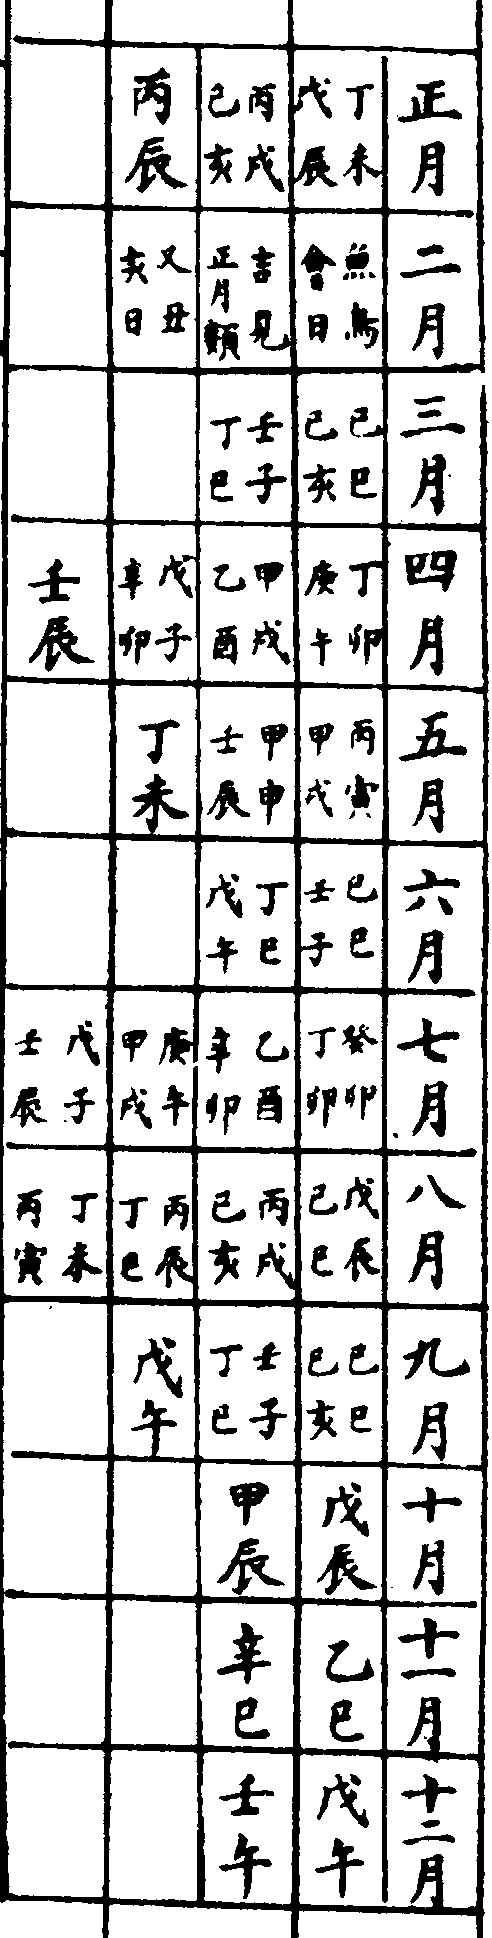 正月
丁未 戊辰
丙戌 己亥
丙辰
二月
魚鳥會日
吉見正月類
又丑亥日
三月
己巳 己亥
壬子 丁巳
四月
丁卯 庚午
甲戌 乙酉
戊子 辛卯
壬辰
五月
丙寅 甲戌
甲申 壬辰
丁未
六月
己巳 壬子
丁巳 戊午
七月
癸卯 丁卯
乙酉 辛卯
庚午 甲戌
戊子 壬辰
八月
戊辰 己巳
丙戌 己亥
丙辰 丁巳
丁未 丙寅
九月
己巳 己亥
壬子 丁巳
戊午
十月
戊辰
甲辰
十一月
乙巳
辛巳
十二月
戊午
壬午